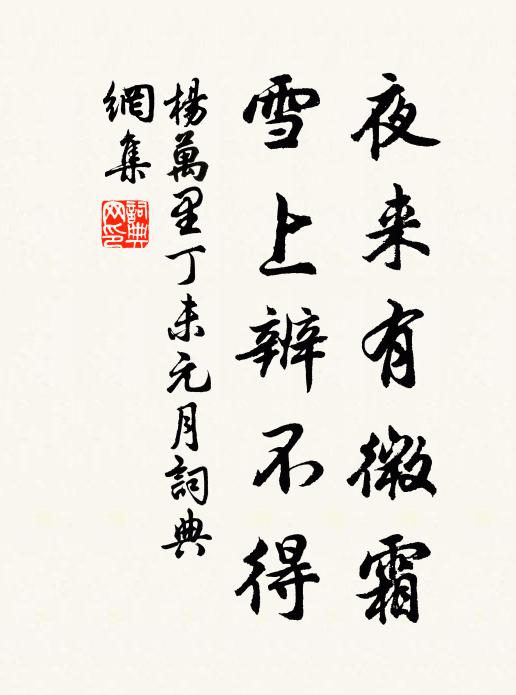 夜来有微霜
雪上辨不得
楊萬里丁未元月詞典
網集
詞典
网印